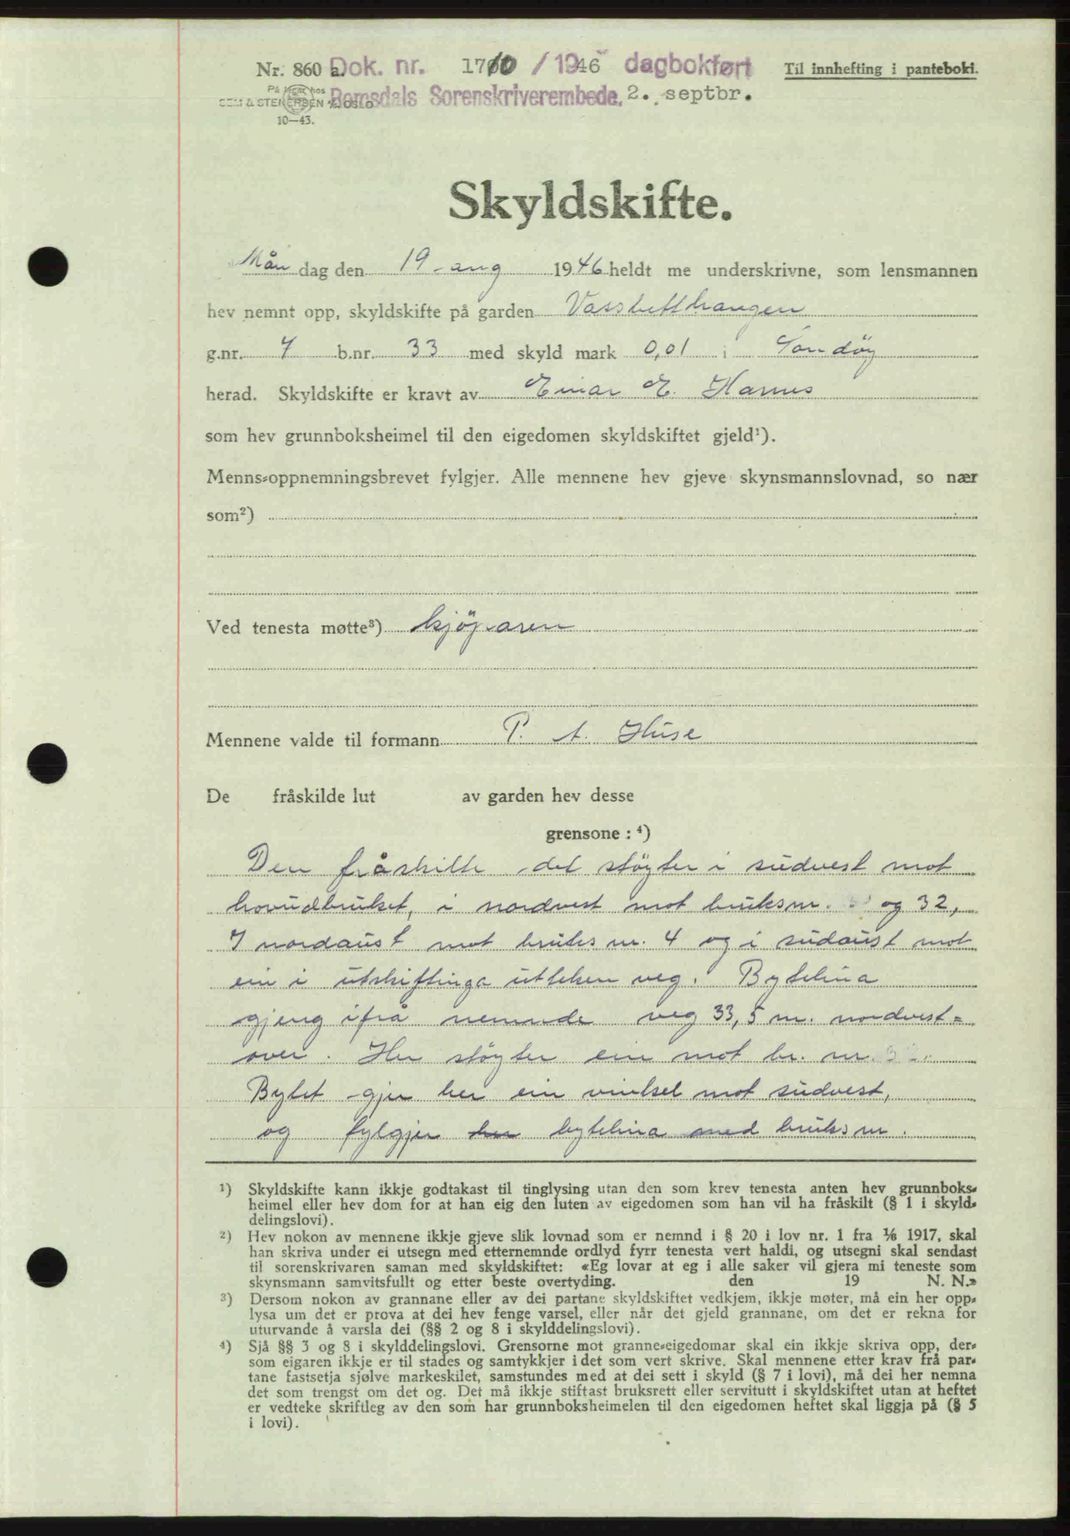 Nr. 860 a. Dok. nr. 1710 / 1946 dagbokført Til innhefting i pantebok.
På lager hos Romsdals Sorenskriverembede. 2. septbr.
SEM & STENERSEN A/S OSLO
10—43.
Skyldskifte.
Mån dag den 19 aug 1946 heldt me underskrivne, som lensmannen
hev nemnt opp, skyldskifte på garden
g.nr. 7 b.nr. 33 med skyld mark 0,01 i Sandöy
herad. Skyldskifte er kravt av Einar E. Harnes
som hev grunnboksheimel til den eigedomen skyldskiftet gjeld¹).
Menns-oppnemningsbrevet fylgjer. Alle mennene hev gjeve skynsmannslovnad, so nær
som²)
Ved tenesta møtte³) kjöparen
Mennene valde til formann P. A. Huse
De fråskilde lut av garden hev desse
grensone : ⁴)
Den fråskilte del støyter i südvest mot
hovudbruket, i nordvest mot bruksnr. og 32,
I nordaust mot bruks nr. 4 og i südaust mot
ein i utskiftinga utteken veg. Bytelina
gjeng ifrå nemnde veg 33,5 m. nordvest=
over. Her støyter ein mot br. nr. 32.
Bytet gjer her ein vinkel mot südvest,
og fylgjer her bytelina med bruksnr.
¹) Skyldskifte kann ikkje godtakast til tinglysing utan den som krev tenesta anten hev grunnboks-
heimel eller hev dom for at han eig den luten av eigedomen som han vil ha fråskilt (§ 1 i skyld-
delingslovi).
²) Hev nokon av mennene ikkje gjeve slik lovnad som er nemnd i § 20 i lov nr. 1 fra ⅙ 1917, skal
han skriva under ei utsegn med etternemnde ordlyd fyrr tenesta vert haldi, og utsegni skal sendast
til sorenskrivaren saman med skyldskiftet: «Eg lovar at eg i alle saker vil gjera mi teneste som
skynsmann samvitsfullt og etter beste overtyding. den 19 N. N.»
³) Dersom nokon av grannane eller av dei partane skyldskiftet vedkjem, ikkje møter, må ein her opp-
lysa um det er prova at dei hev fenge varsel, eller når det gjeld grannane, om det er rekna for
uturvande å varsla dei (§§ 2 og 8 i skylddelingslovi).
⁴) Sjå §§ 3 og 8 i skylddelingslovi. Grensorne mot granne-eigedomar skal ein ikkje skriva opp, der-
som eigaren ikkje er til stades og samtykkjer i det som vert skrive. Skal mennene etter krav frå par-
tane fastsetja sjølve markeskilet, samstundes med at dei sett i skyld (§ 7 i lovi), må dei her nemna
det som trengst om det og. Det må ikkje stiftast bruksrett eller servitutt i skyldskiftet utan at heftet
er vedteke skriftleg av den som har grunnboksheimelen til den eigedomen heftet skal liggja på (§ 5
i lovi).